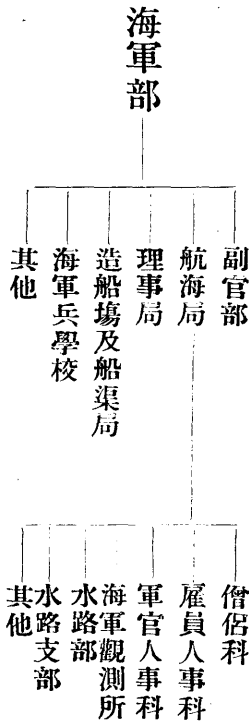 海軍部
副官部
航海局
理事局
造船塲及船渠局
海軍兵學校
其他
僧侶科
雇員人事科
軍官人事科
海軍觀測所
水路部
水路支部
其他